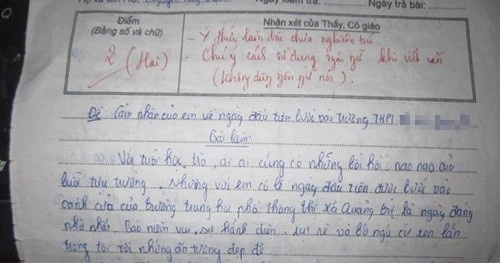 Ngày kiểm tra: Ngày trả bài:
Điểm
(Bằng số và chữ)
Nhận xét của Thầy, Cô giáo
2 (Hai)
- Ý thức làm bài chưa nghiêm túc
- Chú ý cách sử dụng ngôn ngữ khi viết văn
(Không dùng ngôn ngữ nói).
Đề: Cảm nhận của em về ngày đầu tiên bước vào trường THPT
Bài làm:
Với tuổi học trò, ai ai cũng có những bồi hồi, nao nao của
buổi tựu trường. Nhưng với em có lẽ ngày đầu tiên được bước vào
cánh cửa của trường trung học phổ thông thị xã Quảng Trị là ngày đáng
nhớ nhất. Bao niềm vui, sự hãnh diện, rụt rè và bỡ ngỡ cứ xen lẫn
trong tôi với những ấn tượng đẹp đẽ.